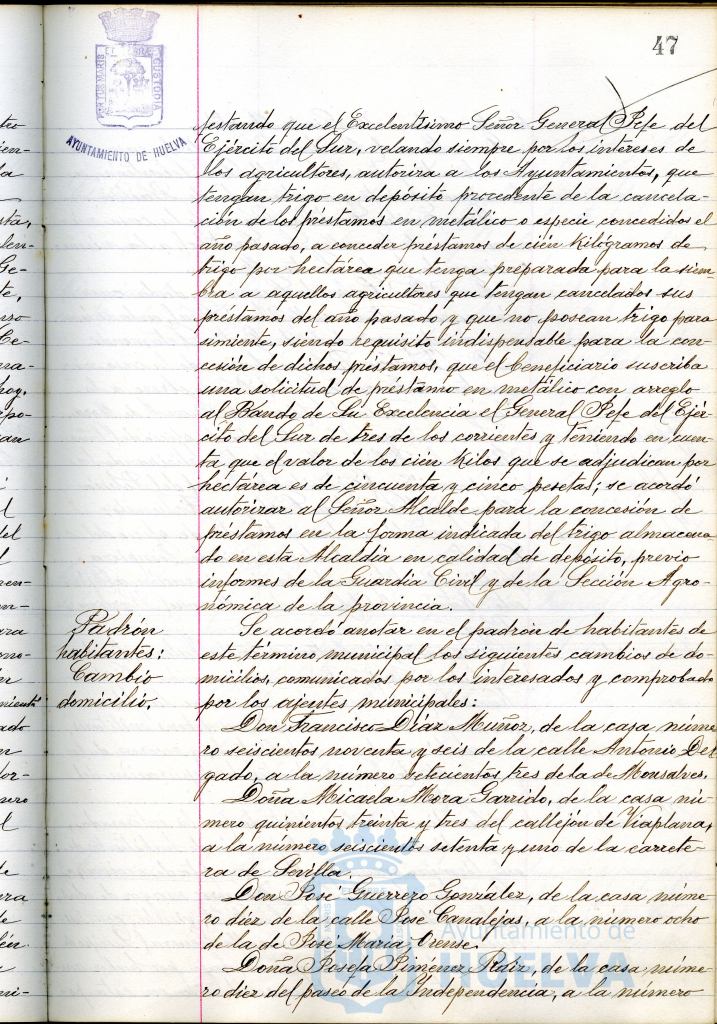 47
PORTUS MARIS ET TERRAE CUSTODIA
AYUNTAMIENTO DE HUELVA
festando que el Excelentísimo Señor General Jefe del
Ejército del Sur, velando siempre por los intereses de
los agricultores, autoriza a los Ayuntamientos, que
tengan trigo en depósito procedente de la cancela-
ción de los préstamos en metálico o especie concedidos el
año pasado, a conceder préstamos de cién kilógramos de
trigo por hectárea que tenga preparada para la siem-
bra a aquellos agricultores que tengan cancelados sus
préstamos del año pasado y que no posean trigo para
simiente, siendo requisito indispensable para la con-
cesión de dichos préstamos, que el beneficiario suscriba
una solicitud de préstamo en metálico con arreglo
al Bando de Su Excelencia el General Jefe del Ejér-
cito del Sur de tres de los corrientes y teniendo en cuen-
ta que el valor de los cién kilos que se adjudican por
hectárea es de cincuenta y cinco pesetas; se acordó
autorizar al Señor Alcalde para la concesión de
préstamos en la forma indicada del trigo almacena-
do en esta Alcaldía en calidad de depósito, previo
informes de la Guardia Civil y de la Sección Agro-
nómica de la provincia.
Padrón
habitantes:
Cambio
domicilio.
Se acordó anotar en el padrón de habitantes de
este término municipal los siguientes cambios de do-
micilios, comunicados por los interesados y comprobado
por los ajentes municipales:
Don Francisco Díaz Muñoz, de la casa núme-
ro seiscientos noventa y seis de la calle Antonio Del-
gado, a la número setecientos tres de la de Monsalves.
Doña Micaela Mora Garrido, de la casa nú-
mero quinientos treinta y tres del callejón de Viaplana,
a la número seiscientos setenta y uno de la carrete-
ra de Sevilla.
Don José Guerrero González, de la casa núme-
ro diez de la calle José Canalejas, a la número ocho
de la de José María Orense.
Doña Josefa Jimenez Ruiz, de la casa núme-
ro diez del paseo de la Independencia, a la número
Ayuntamiento de
HUELVA